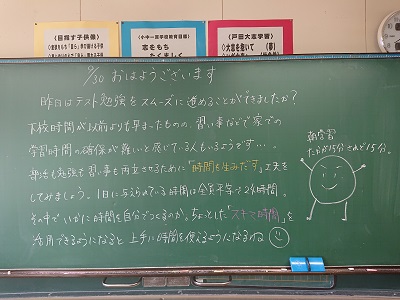 〈目指す子供像〉
〈小中一貫学校教育目標〉
志をもち
たくましく
〈戸田大志学習〉
◇大志を抱いて（夢）
/30 おはようございます
昨日はテスト勉強をスムーズに進めることができましたか？
下校時間が以前よりも早まったものの、習い事などで家での
学習時間の確保が難しいと感じている人もいるようです…。
部活も勉強も習い事も両立させるために「時間を生みだす」工夫を
してみましょう。1日に与えられている時間は全員平等で24時間。
その中でいかに時間を自分でつくるのか。ちょっとした「スキマ時間」を
活用できるようになると上手に時間を使えるようになるかね
朝学習
たかが15分されど15分。